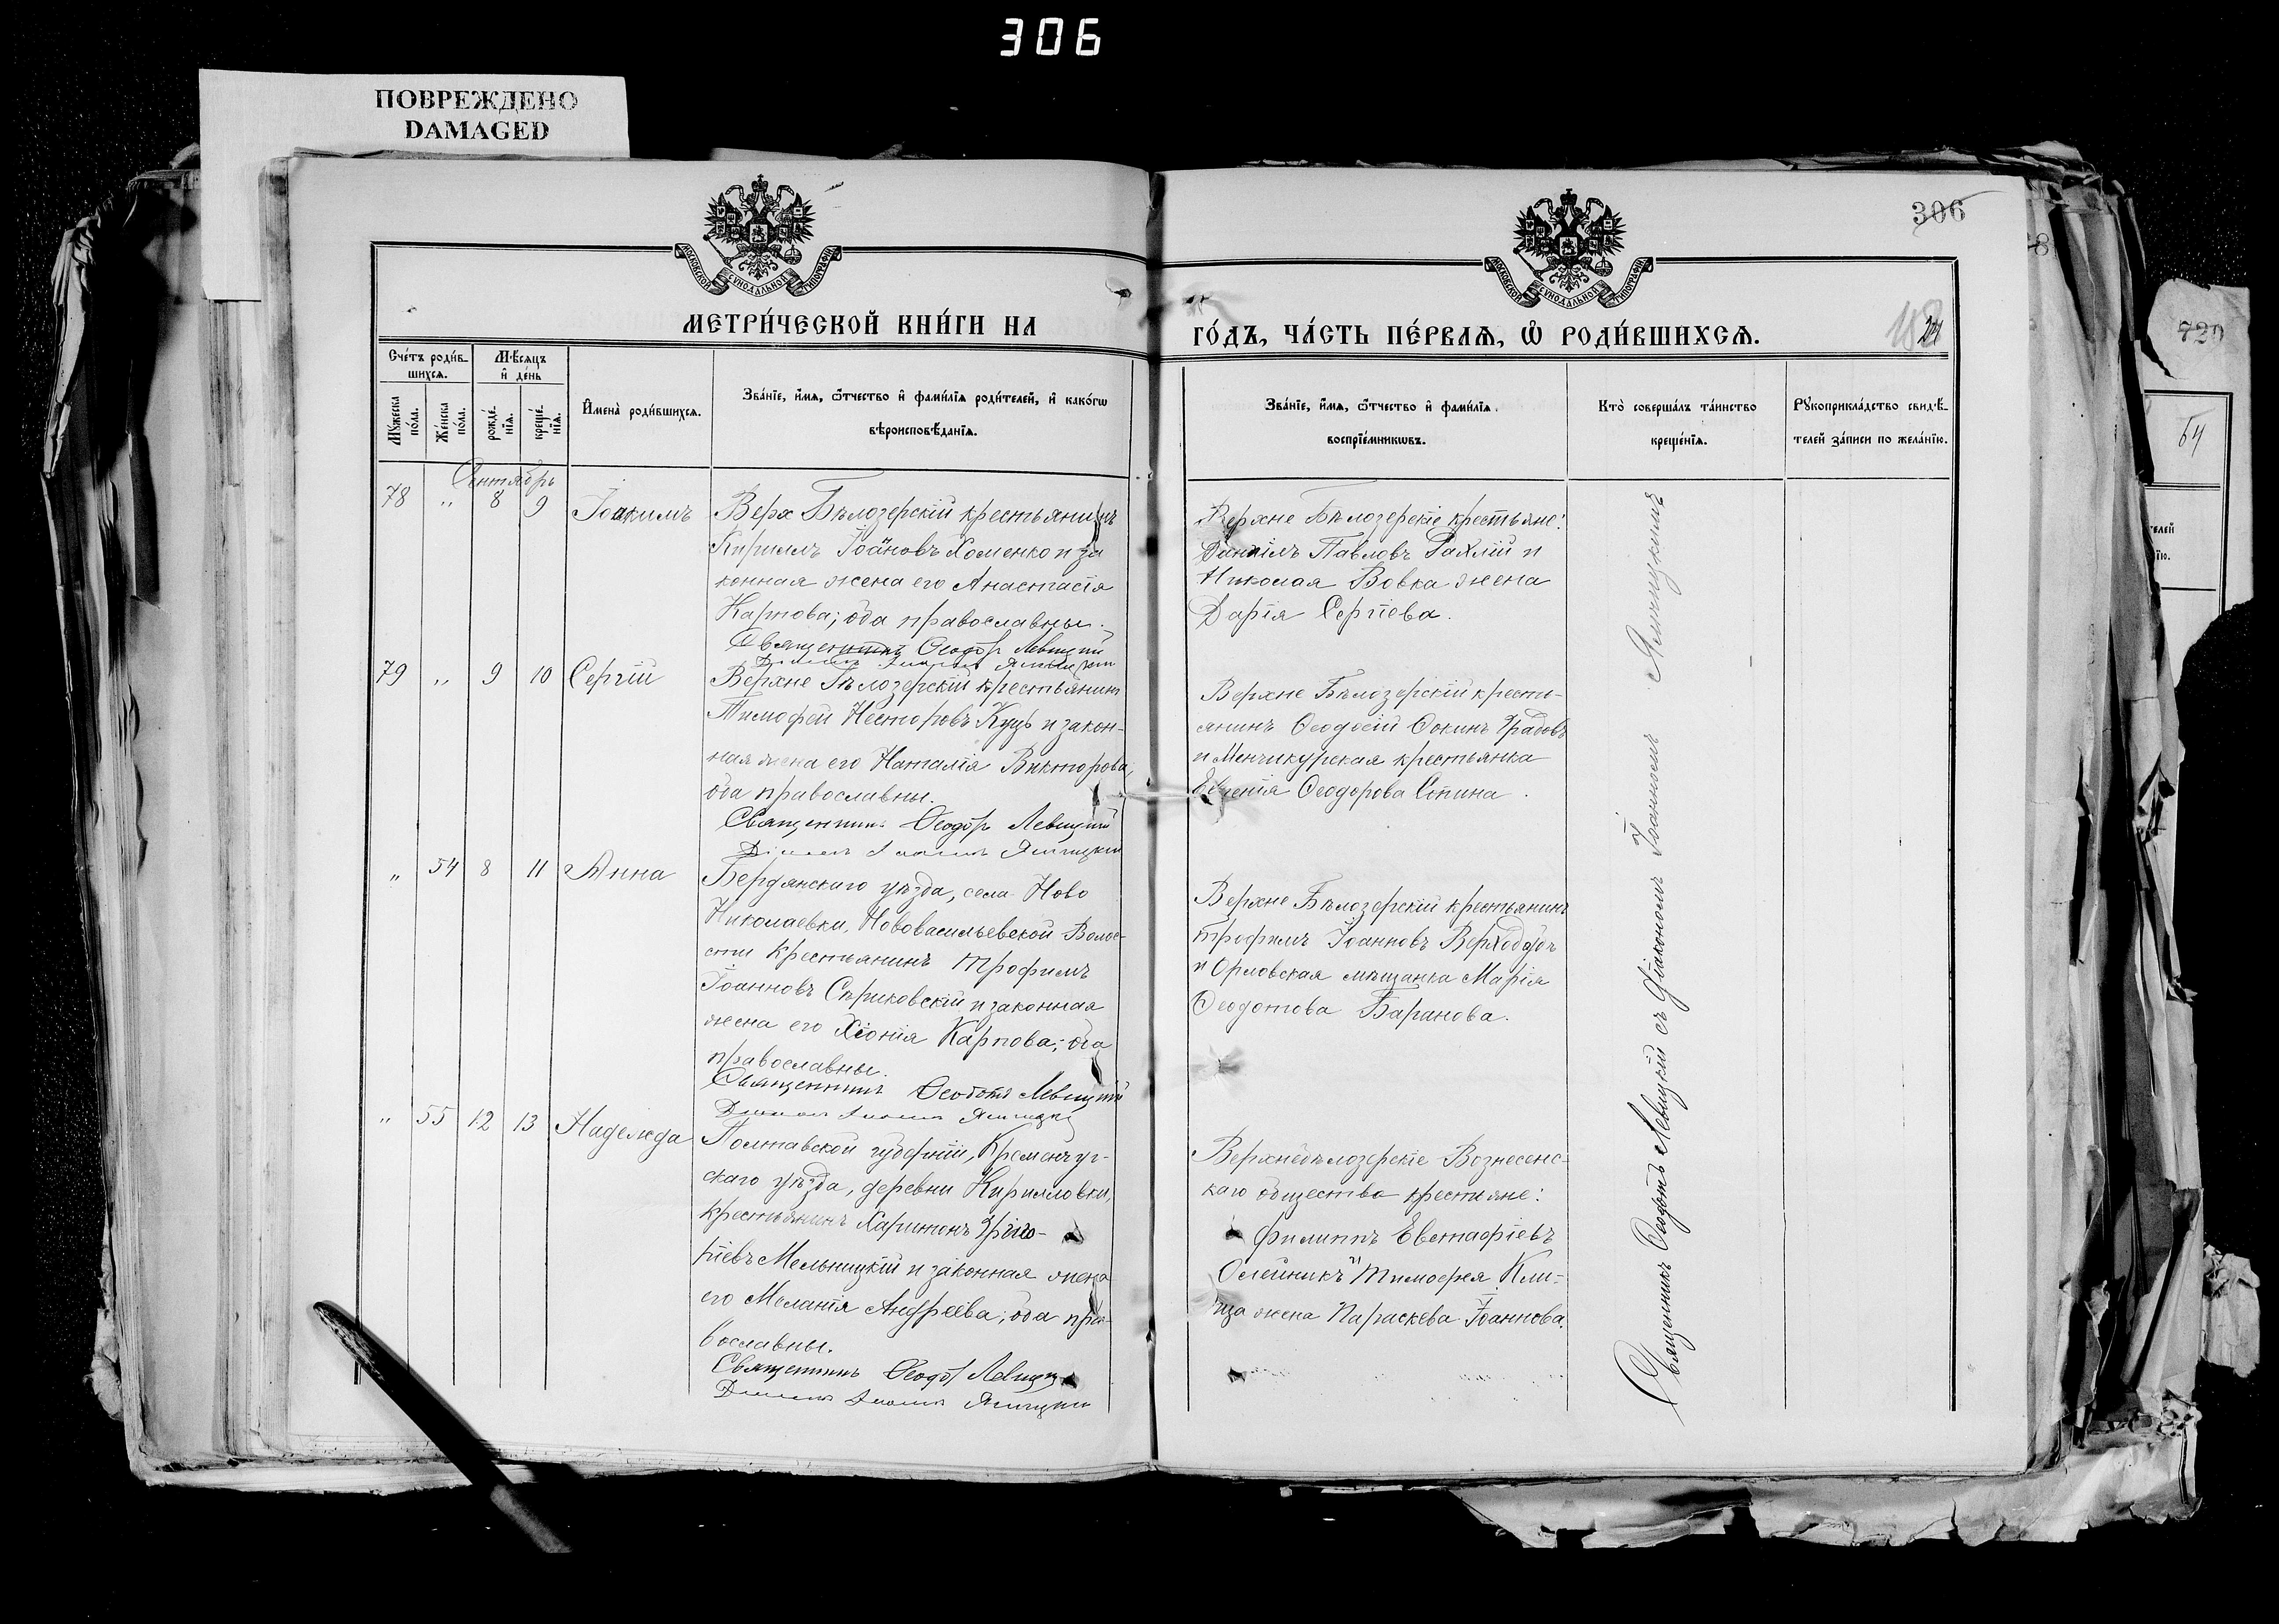 306
ПОВРЕЖДЕНО
DAMAGED
306
МОСКОВСКОЙ СѴНОДАЛЬНОЙ ТИПОГРАФІИ
МОСКОВСКОЙ СѴНОДАЛЬНОЙ ТИПОГРАФІИ
МЕТРИ́ЧЕСКОЙ КНИ́ГИ НА
ГО́ДЪ, ЧА́СТЬ ПЕ́РВАѦ, Ѽ РОДИ́ВШИХСѦ.
Сче́тъ роди́в-
шихсѧ.
Мѣ́сяцъ
и҆ де́нь
Мꙋжеска по́ла.
Же́нска по́ла.
рожде́-
нїѧ.
креще́-
нїѧ.
И҆мена̀ роди́вшихсѧ.
Зва́нїе, и҆́мѧ, ѻ҆́тчество и҆ фами́лїѧ роди́телей, и҆ како́гѡ
вѣроисповѣ́данїѧ.
Зва́нїе, и҆́мѧ, ѻ҆́тчество и҆ фами́лїѧ
воспрїе́мникѡвъ.
Кто̀ соверша́лъ та́инство
креще́нїѧ.
Рꙋкоприкла́дство свидѣ́-
телей за́писи по жела́нїю.
Сентябрь
78 " 8 9 Іоакимъ
Верх Бѣлозерскій крестьянинъ
Кирилъ Іоановъ Хоменко и за
конная жена его Анастасія
Карпова; оба православны.
Священникъ Ѳеодоръ Левицкій
Верхне Бѣлозерскіе крестьяне:
Даніилъ Павловъ и
Николая Вовка жена
Дарія Сергіева.
79 " 9 10 Сергій
Верхне Бѣлозерскій крестьянинъ
Тимофей Несторовъ Куцъ и закон-
ная жена его Наталія Викторова,
оба православны.
Священникъ Ѳеодоръ Левицкій
Діаконъ Іоаннъ
Верхне Бѣлозерскій кресть-
янинъ Ѳеодосій Ѳокинъ Градовъ
и Менчикурская крестьянка
Ѳеодорова
" 54 8 11 Анна
Бердянскаго уѣзда, села Ново
Николаевки, Нововасильевской Волос-
сти крестьянинъ Трофимъ
Іоанновъ Сѣриковскій и законная
жена его Хіонія Карпова; оба
православны.
Священникъ Ѳеодотъ Левицкій
Діаконъ Іоаннъ
Верхне Бѣлозерскій крестьянинъ
Трофимъ Іоанновъ
и Орловская мѣщанка Марія
Ѳеодотова Баранова.
" 55 12 13 Надежда
Полтавской губерніи, Кременчуг-
скаго уѣзда, деревни Кирилловки,
крестьянинъ Харитонъ Григо-
ріевъ Мельницкій и законная жена
его Меланія Андреева; оба пра-
вославны.
Священникъ Ѳеодотъ Левицкій
Діаконъ Іоаннъ
Верхнебѣлозерскіе Вознесенс-
каго общества крестьяне:
Филиппъ Евстафіевъ
Олейникъ и Тимофея Кли-
ца жена Параскева Іоаннова.
Священникъ Ѳеодотъ Левицкій съ діакономъ Іоанномъ
720
64